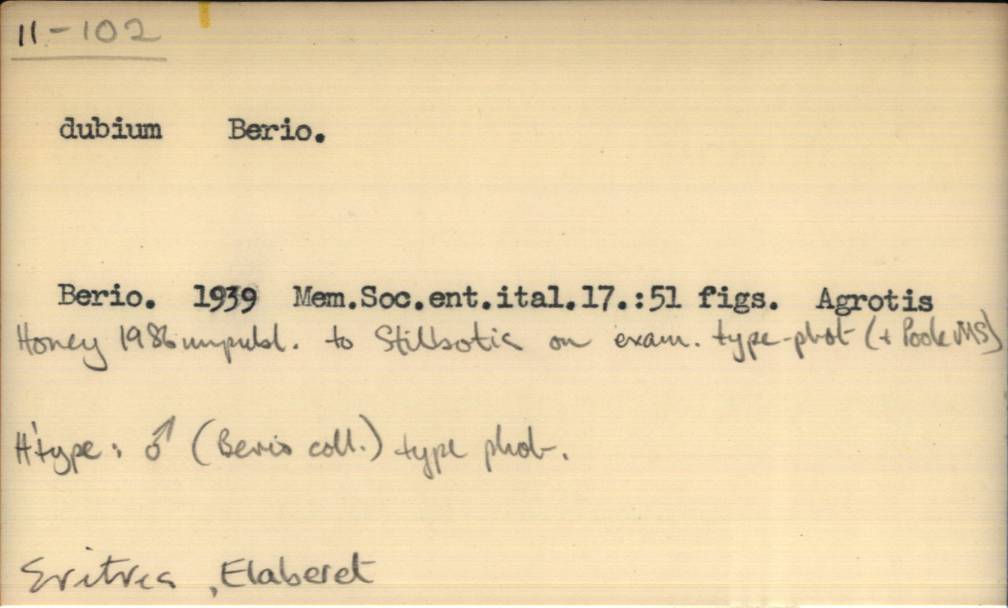 11-102
dubium Berio.
Berio. 1939 Mem.Soc.ent.ital.17.:51 figs. Agrotis
Honey 1986 unpubl. to Stilbotis on exam. type-phot (+ Poole MS)
H'type: ♂ (Berio coll.) type phot.
Eritrea, Elaberet